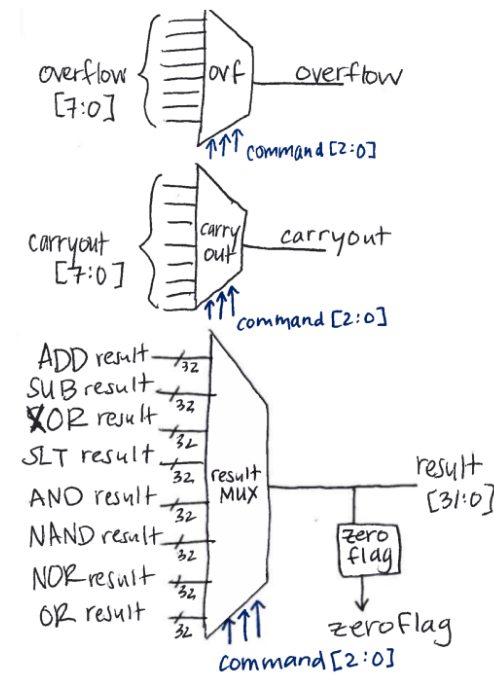 overflow
[7:0]
ovf
overflow
command [2:0]
carryout
[7:0]
carry
out
carryout
command [2:0]
ADD result
32
SUB result
32
XOR result
32
SLT result
32
AND result
32
NAND result
32
NOR result
32
OR result
32
result
MUX
command [2:0]
result
[31:0]
zero
flag
zeroflag